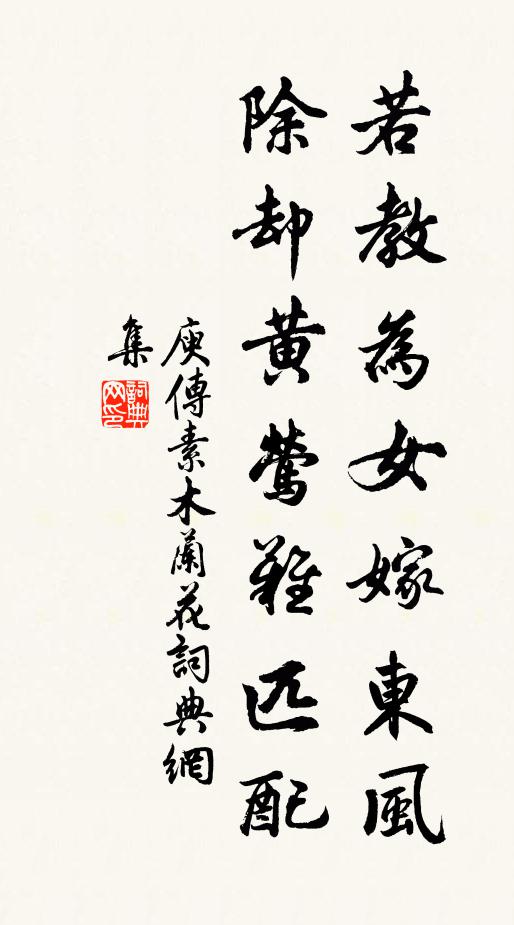 若教為女嫁東風
除却黃鶯難匹配
庾傳素木蘭花詞典網
集
詞典網印